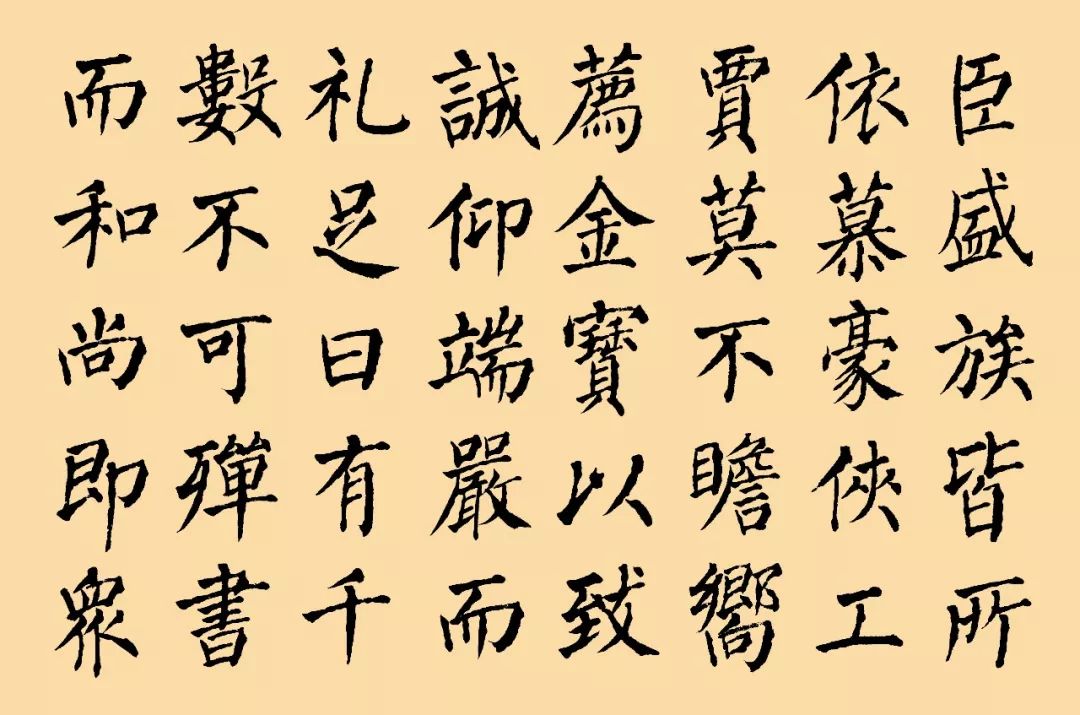 臣盛族皆所
依慕豪俠工
賈莫不瞻嚮
薦金寶以致
誠仰端嚴而
礼足日有千
數不可殫書
而和尚即衆